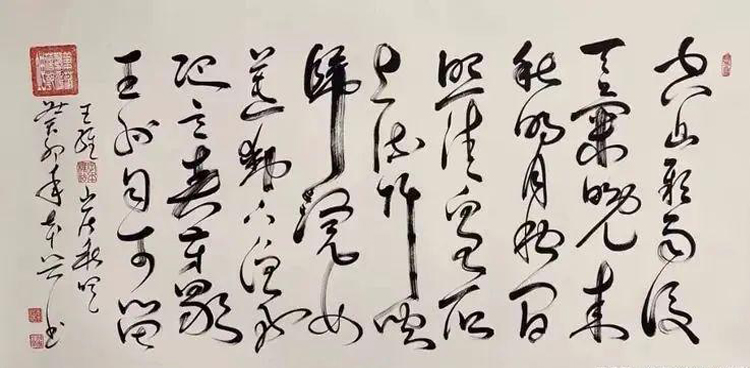 空山新雨後
天氣晚來
秋明月松間
照清泉石
上流竹喧
歸浣女
蓮動下漁舟
隨意春芳歇
王孫自可留
王維山居秋暝
癸卯年書